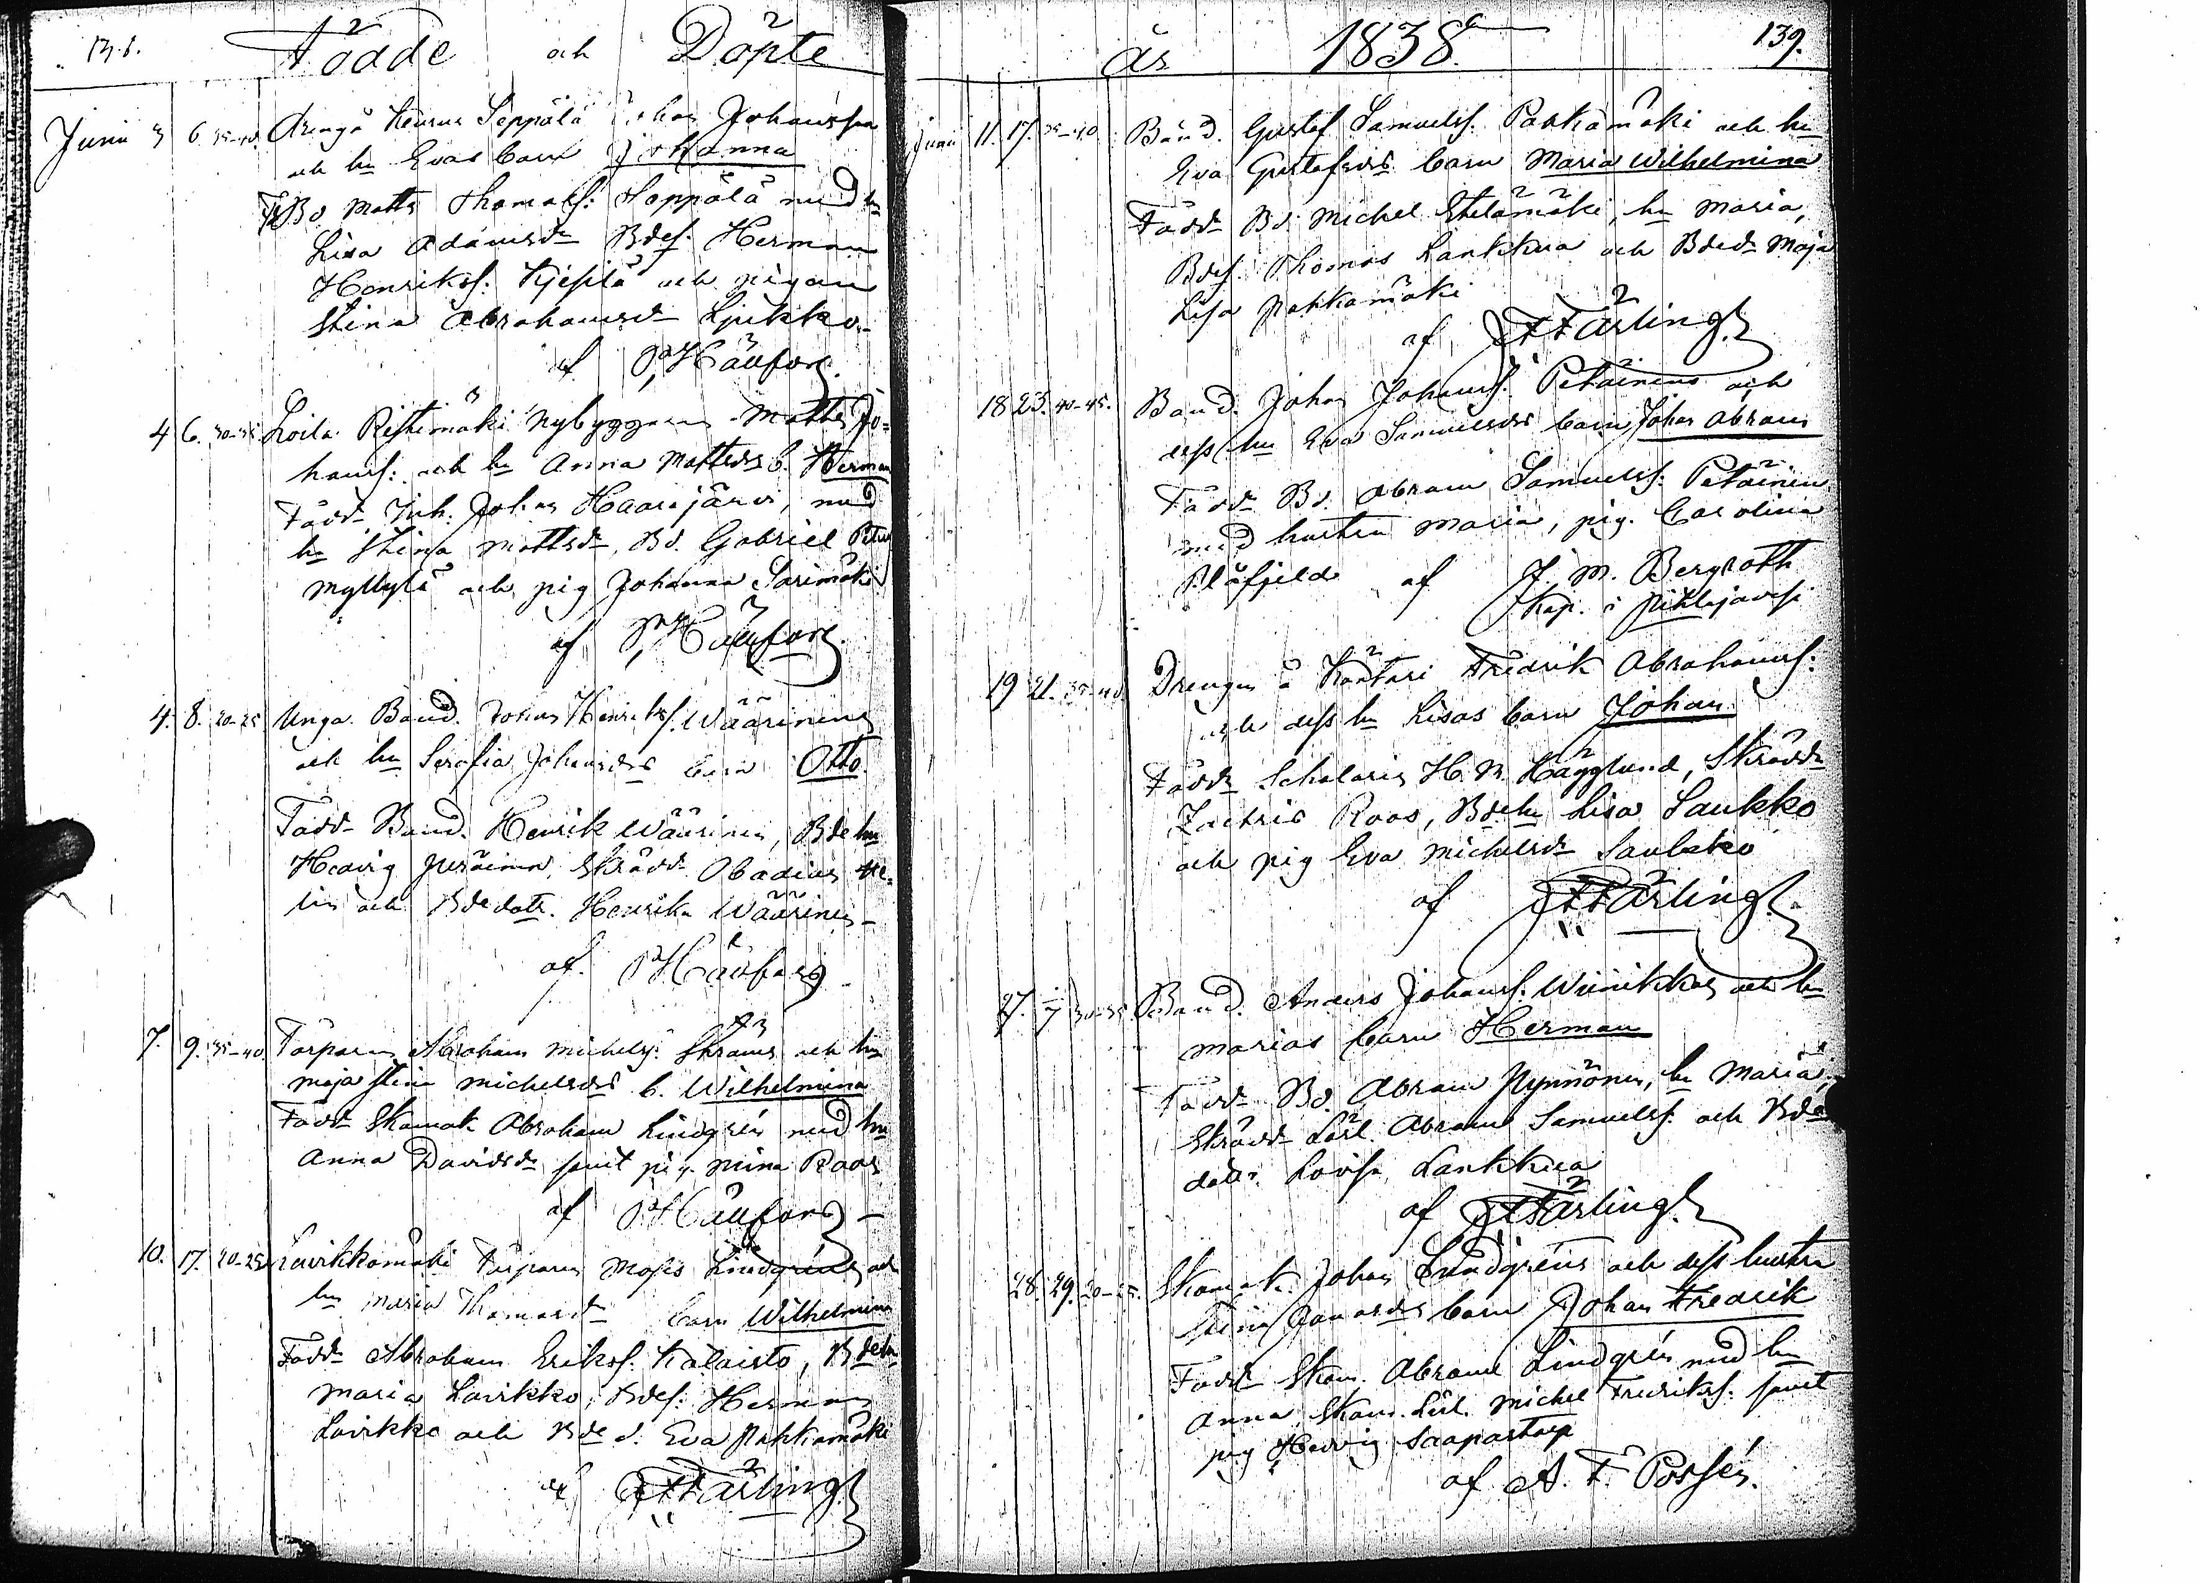 138.
Födde och Döpte
Junii 3 6. 35-40. Drengs Seppälä Johan Johansson
och hu Evas barn Johanna
Bd Matts Thomass: Seppälä med hu
Lisa Adamsdr Bdes. Herman
Henrikss: och pigan
Stina Abrahamsdr Ljukko
af
4 6. 30-35 Loila Ristimäki Nybyggaren Matts Jo=
hanss: och hu Anna Mattsdrs b. Herman
Fadd. Inh. Johan Haarajärvi, med
hu Stina Mattsdr, Bd. Gabriel
Myllylä och pig Johanna Sarimäki
af
4. 8. 20-25 Unga Bond. Henrikss. Wäärinens
och hu Serafia Johansdrs barn Otto.
Fadd. Bond. Henrik Wäärinen, Bdehu
Hedvig Peräinen, Skrädd. Obadias
och Bdedotr. Henrika Wäärinen
af.
7. 9. 35-40 Torparen Abraham Michelss: och hu
Maja Stina Michelsdrs b. Wilhelmina
Fadd. Skomak. Abraham Lindgrén med hu
Anna Davidsdr samt pig. Mina Roos
af
10. 17. 20-25 Lavikkomäki Torparen Moses Lindgréns och
hu Maria Thomasdr barn Wilhelmina
Fadd. Abraham Erikss. Kalaisto, Bdehu
Maria Lavikko, Bdes: Herman
Lavikko och Bde d. Eva Pahkamäki
af Färling
år 1838. 139.
Junii 11. 17. 35-40 Bond. Gustaf Samuelss. Pahkamäki och hu
Eva Gustafsdrs barn Maria Wilhelmina
Fadd. Bd. Michel Etelämäki, hu Maria,
Bdes. Thomas Lankkua och Bdedr Maja
Lisa Pahkamäki
af Färling
18 23. 40-45. Bond. Johan Johanss. Petäinens och
dess hu Eva Samuelsdrs barn Johan Abram
Fadd. Bd. Abram Samuelss: Petäinen
med hustru Maria, pig. Carolina
Blåfjeld af J. M. Bergroth
Kap. i Pihlajavesi
19 21. 35-40 Drengen å Kantari Fredrik Abrahamss:
och dess hu Lisas barn Johan
Fadd. Scholaris H. N. Hägglund, Skrädd.
Zachris Roos, Bdehu Lisa Saukko
och pig Eva Michelsdr Saukko
af Färling
27. 1/7 30-35 Bond. Anders Johanss. Wiinikkas och hu
Marias barn Herman
Fadd. Bd. Abram Pynnönen, hu Maria,
Skrädd. Lärl. Abram Samuelss. och Bde
dottr. Lovisa Lankkua
af Färling
28. 29. 20-25. Skomak. Johan Lindgréns och dess hustru
Stina barn Johan Fredrik
Fadd. Skom. Abram Lindgrén med hu
Anna, Skom. Lärl. Michel Fredrikss. samt
pig Hedvig Saapastorp
af A. F. Possén.